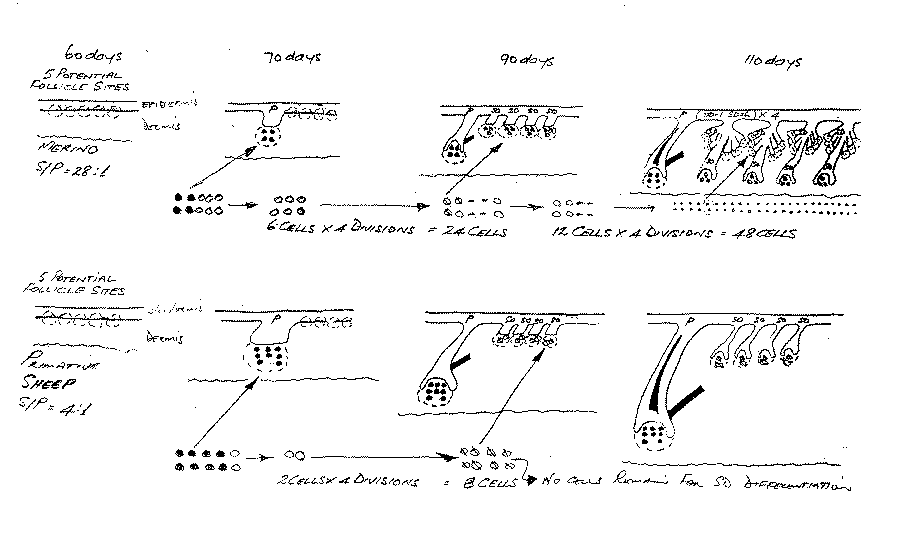 60 days 70 days 90 days 110 days
5 POTENTIAL
FOLLICLE SITES
EPIDERMIS
DERMIS
MERINO
S/P = 28:1
P
P SO SO SO SO
P × 4
6 CELLS X 4 DIVISIONS = 24 CELLS 12 CELLS X 4 DIVISIONS = 48 CELLS
5 POTENTIAL
FOLLICLE SITES
DERMIS
PRIMATIVE
SHEEP
S/P = 4:1
P
P SO SO SO SO
P SO SO SO SO
2 CELLS X 4 DIVISIONS = 8 CELLS NO CELLS REMAIN FOR SD DIFFERENTIATION